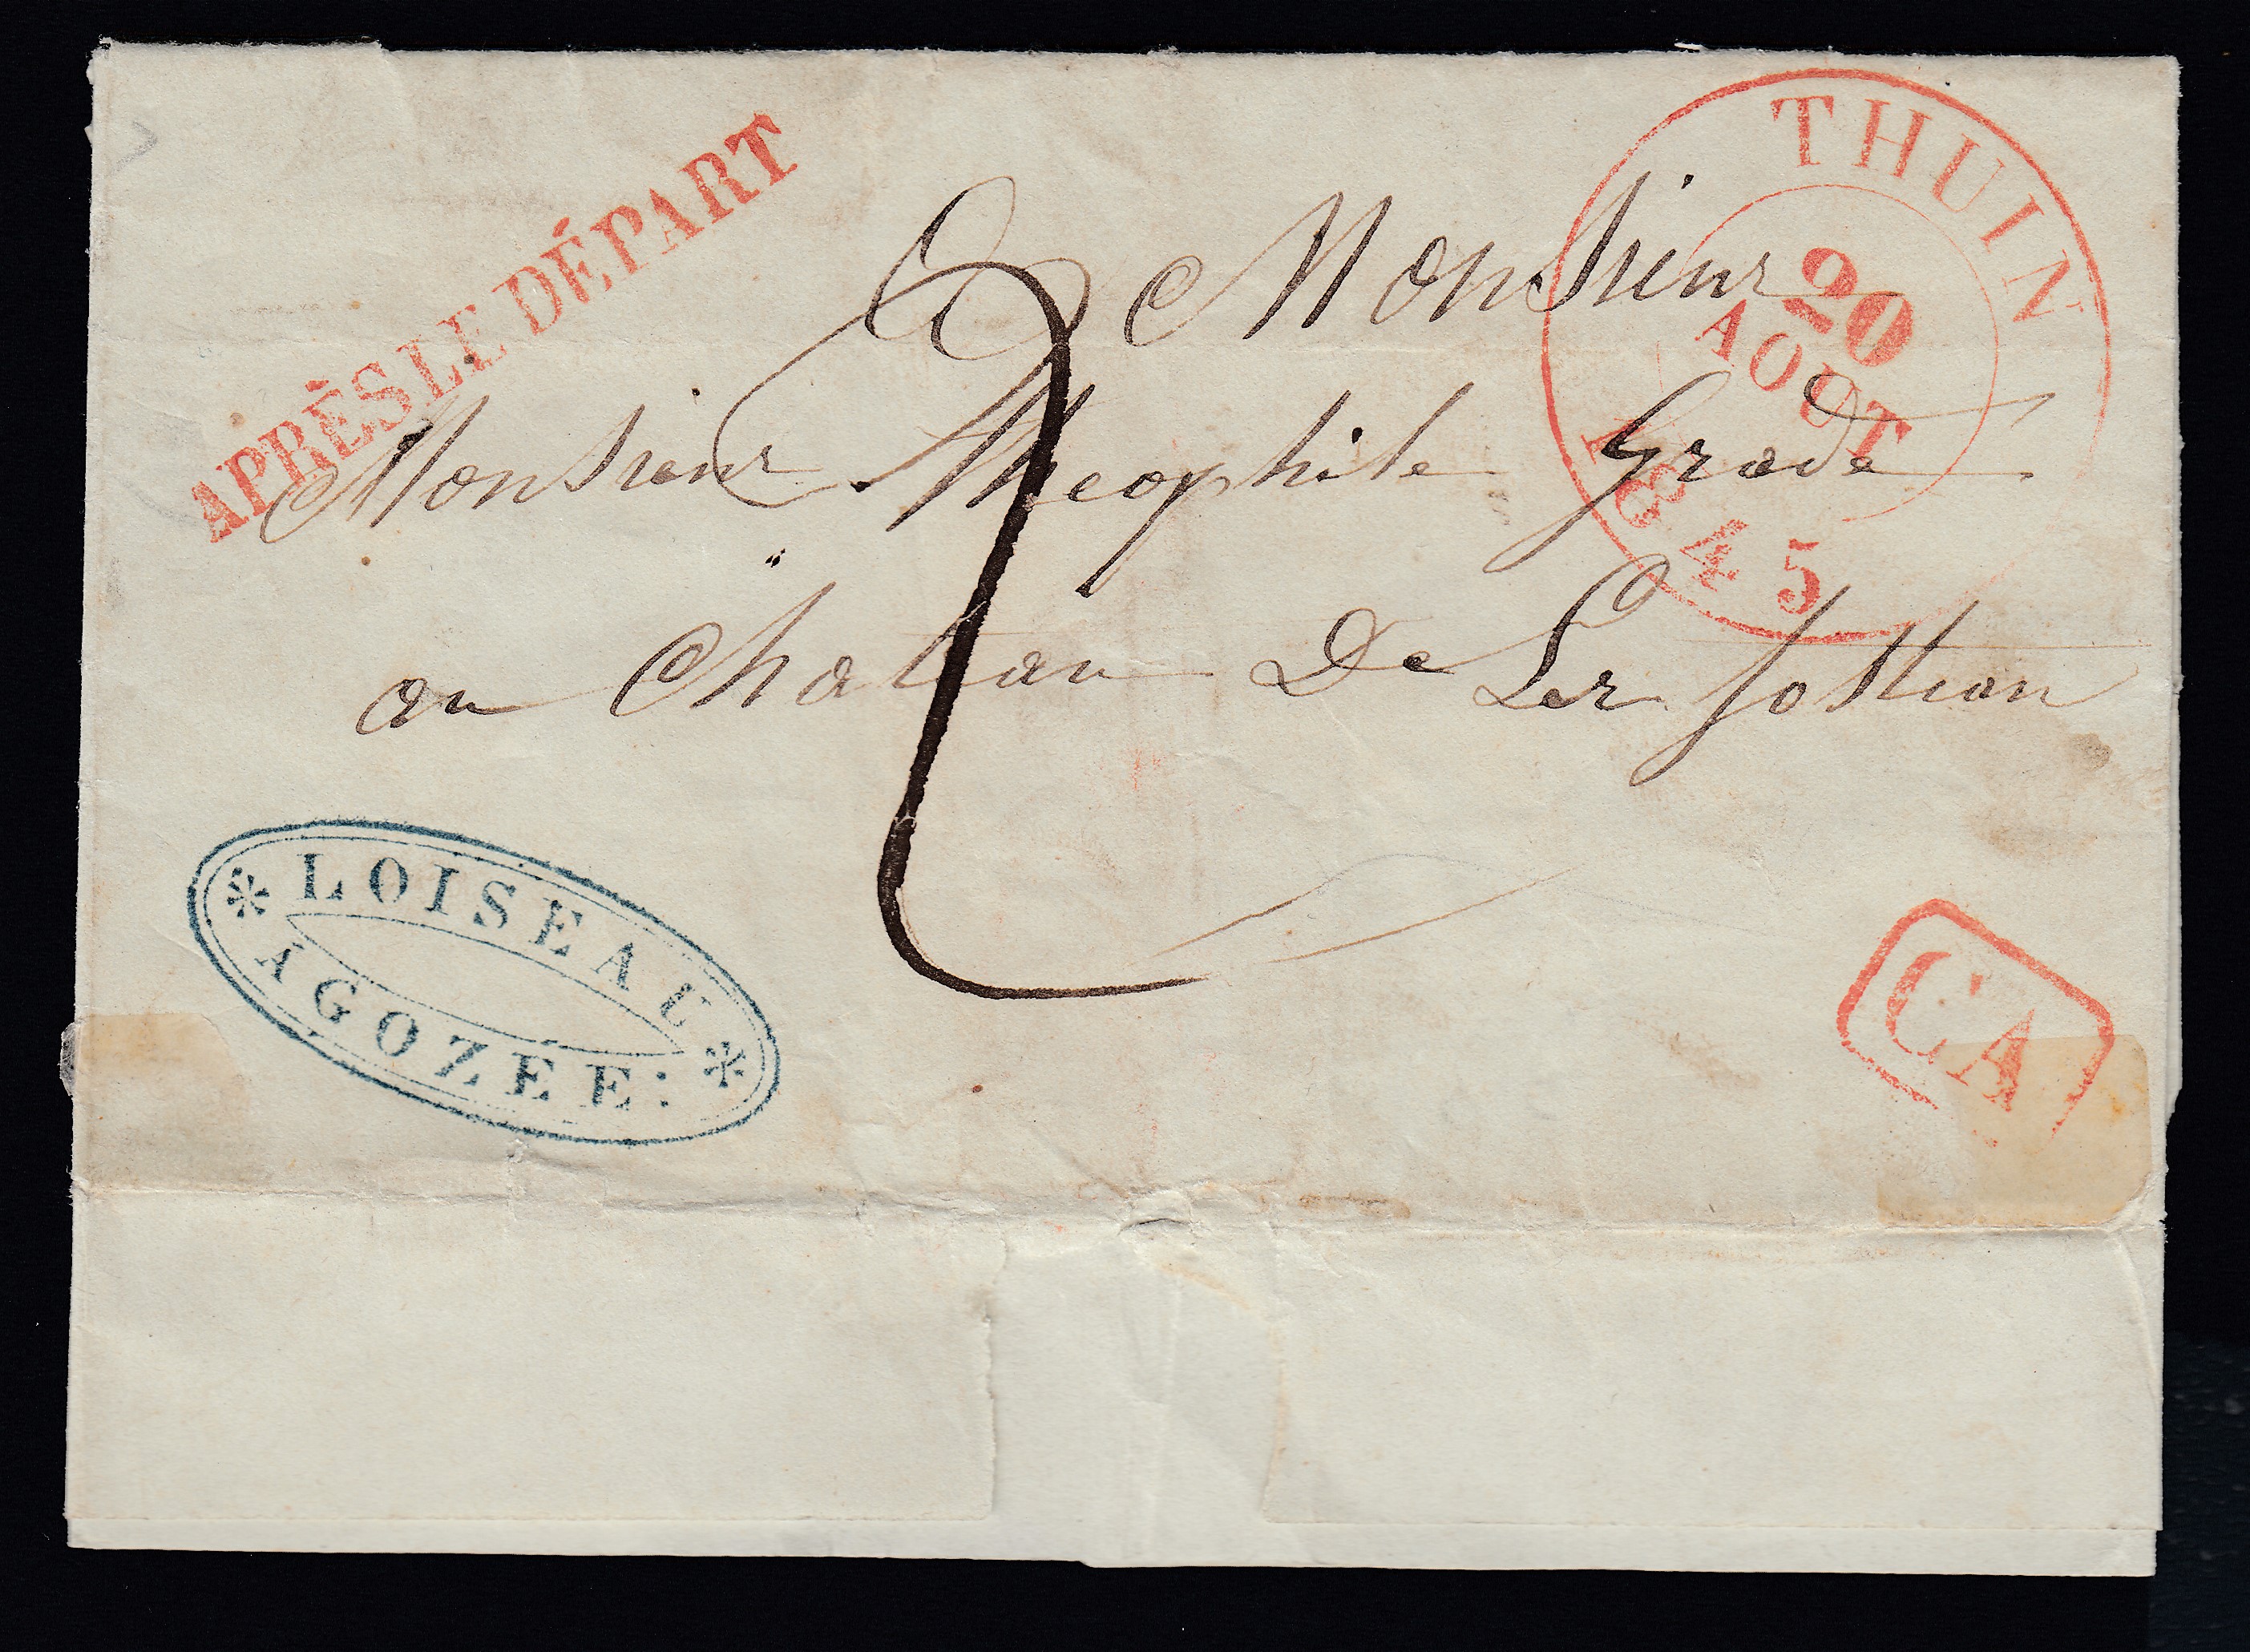 APRÈS LE DÉPART
THUIN
20
AOUT
1845
A Monsieur
Monsieur Theophile Grade
2
au Chateau De
LOISEAU
A GOZÉE:
CA